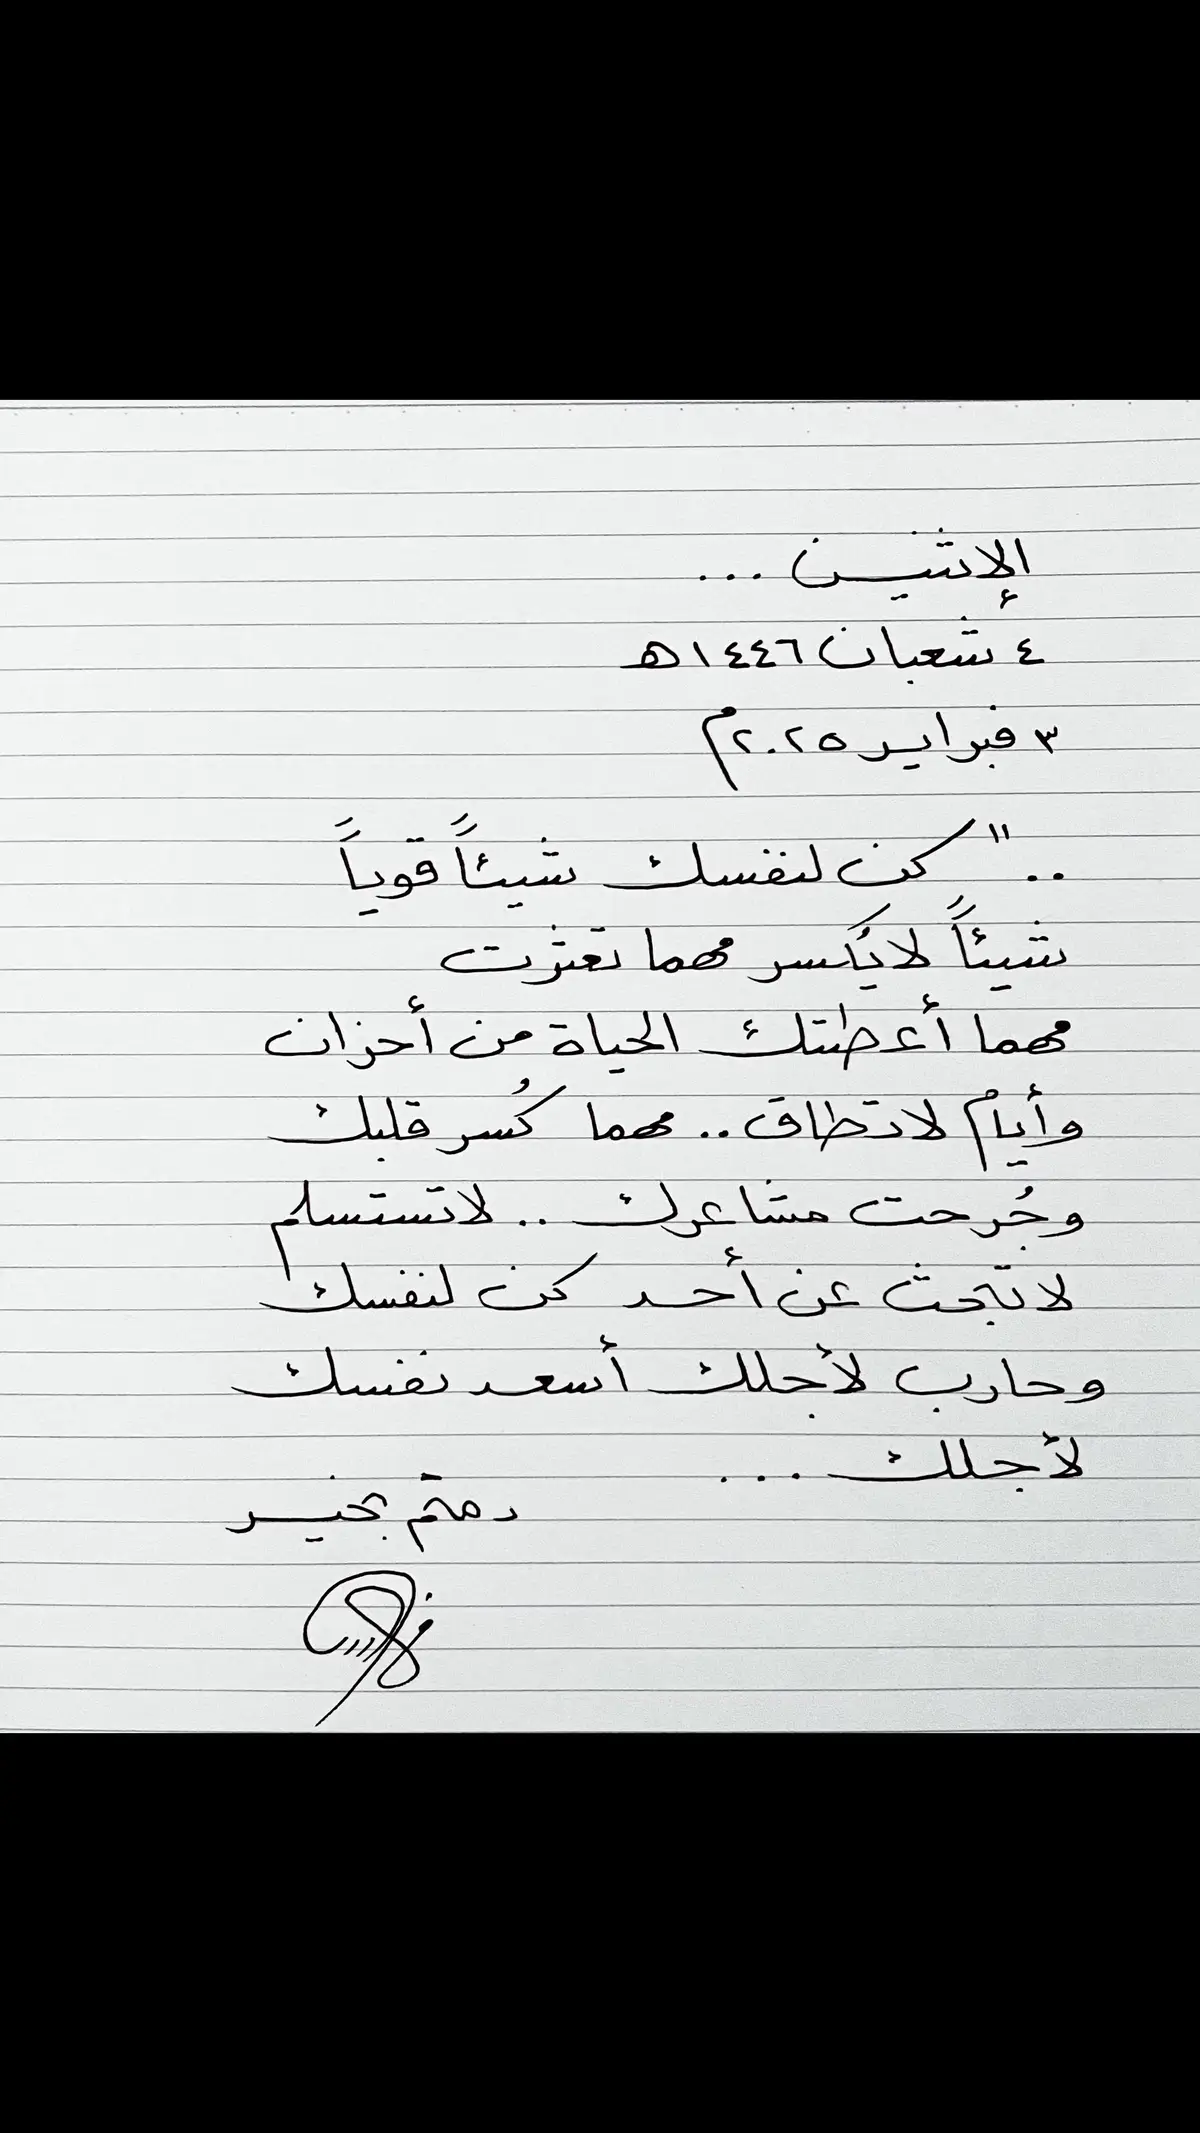 الإثنين ...
٤ شعبان ١٤٤٦هـ
٣ فبراير ٢٠٢٥م
.. " كن لنفسك شيئاً قوياً
شيئاً لا يُكسر مهما تعثرت
مهما أعطتك الحياة من أحزان
وأيام لا تطاق .. مهما كُسر قلبك
وجُرحت مشاعرك .. لا تستسلم
لا تبحث عن أحد كن لنفسك
وحارب لأجلك أسعد نفسك
لأجلك ...
دمتم بخير